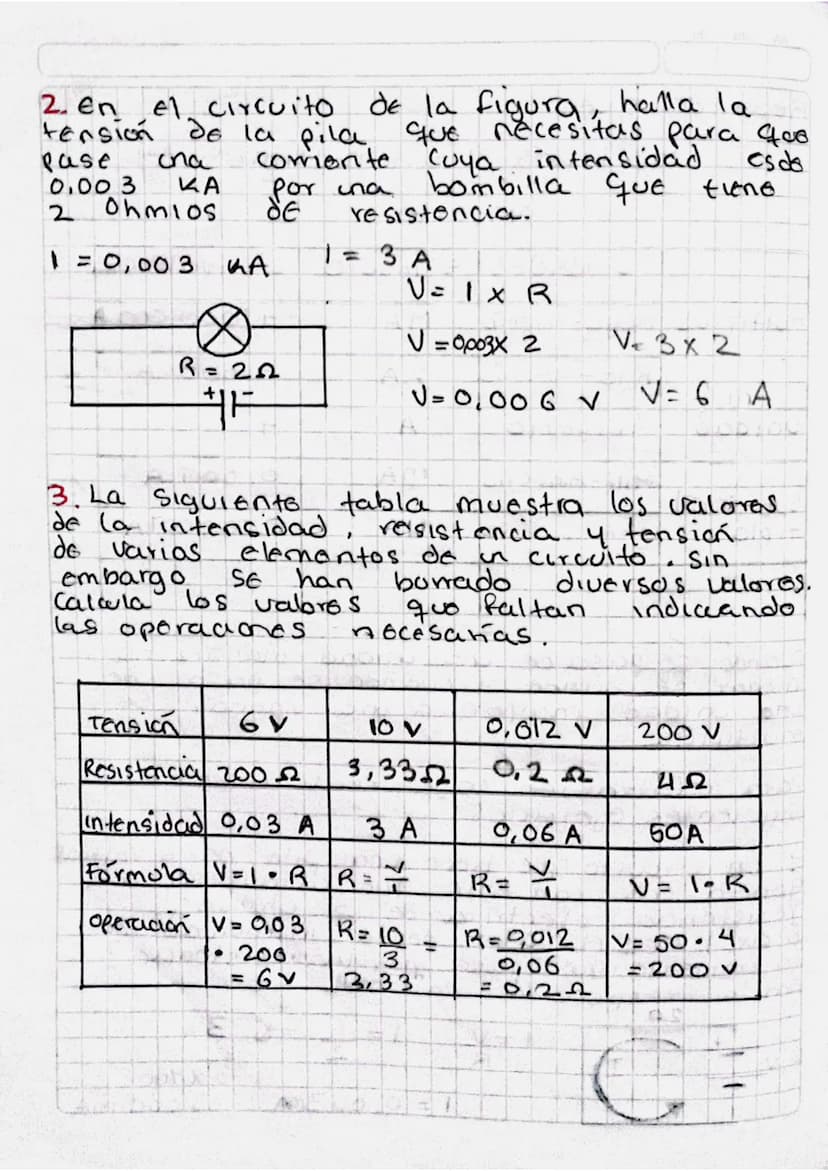 2. En el circuito de la figura, halla la
tensión de la pila que necesitas para que
pase una corriente cuya intensidad es de
0,003 KA por una bombilla que tiene
2 Ohmios de resistencia.
I = 0,003 KA I = 3 A
V = I x R
V = 0,003 x 2 V = 3 x 2
R = 2Ω
+ -
V = 0,006 V V = 6 A
3. La siguiente tabla muestra los valores
de la intensidad, resistencia y tensión
de varios elementos de un circuito. Sin
embargo se han borrado diversos valores.
Calcula los valores que faltan indicando
las operaciones necesarias.
Tensión 6 V 10 V 0,012 V 200 V
Resistencia 200 Ω 3,33 Ω 0,2 Ω 4 Ω
Intensidad 0,03 A 3 A 0,06 A 50 A
Fórmula V = I · R R = V/I R = V/I V = I · R
Operación V = 0,03 R = 10/3 = R = 0,012/0,06 V = 50 · 4
· 200 3,33 = 0,2 Ω = 200 V
= 6 V